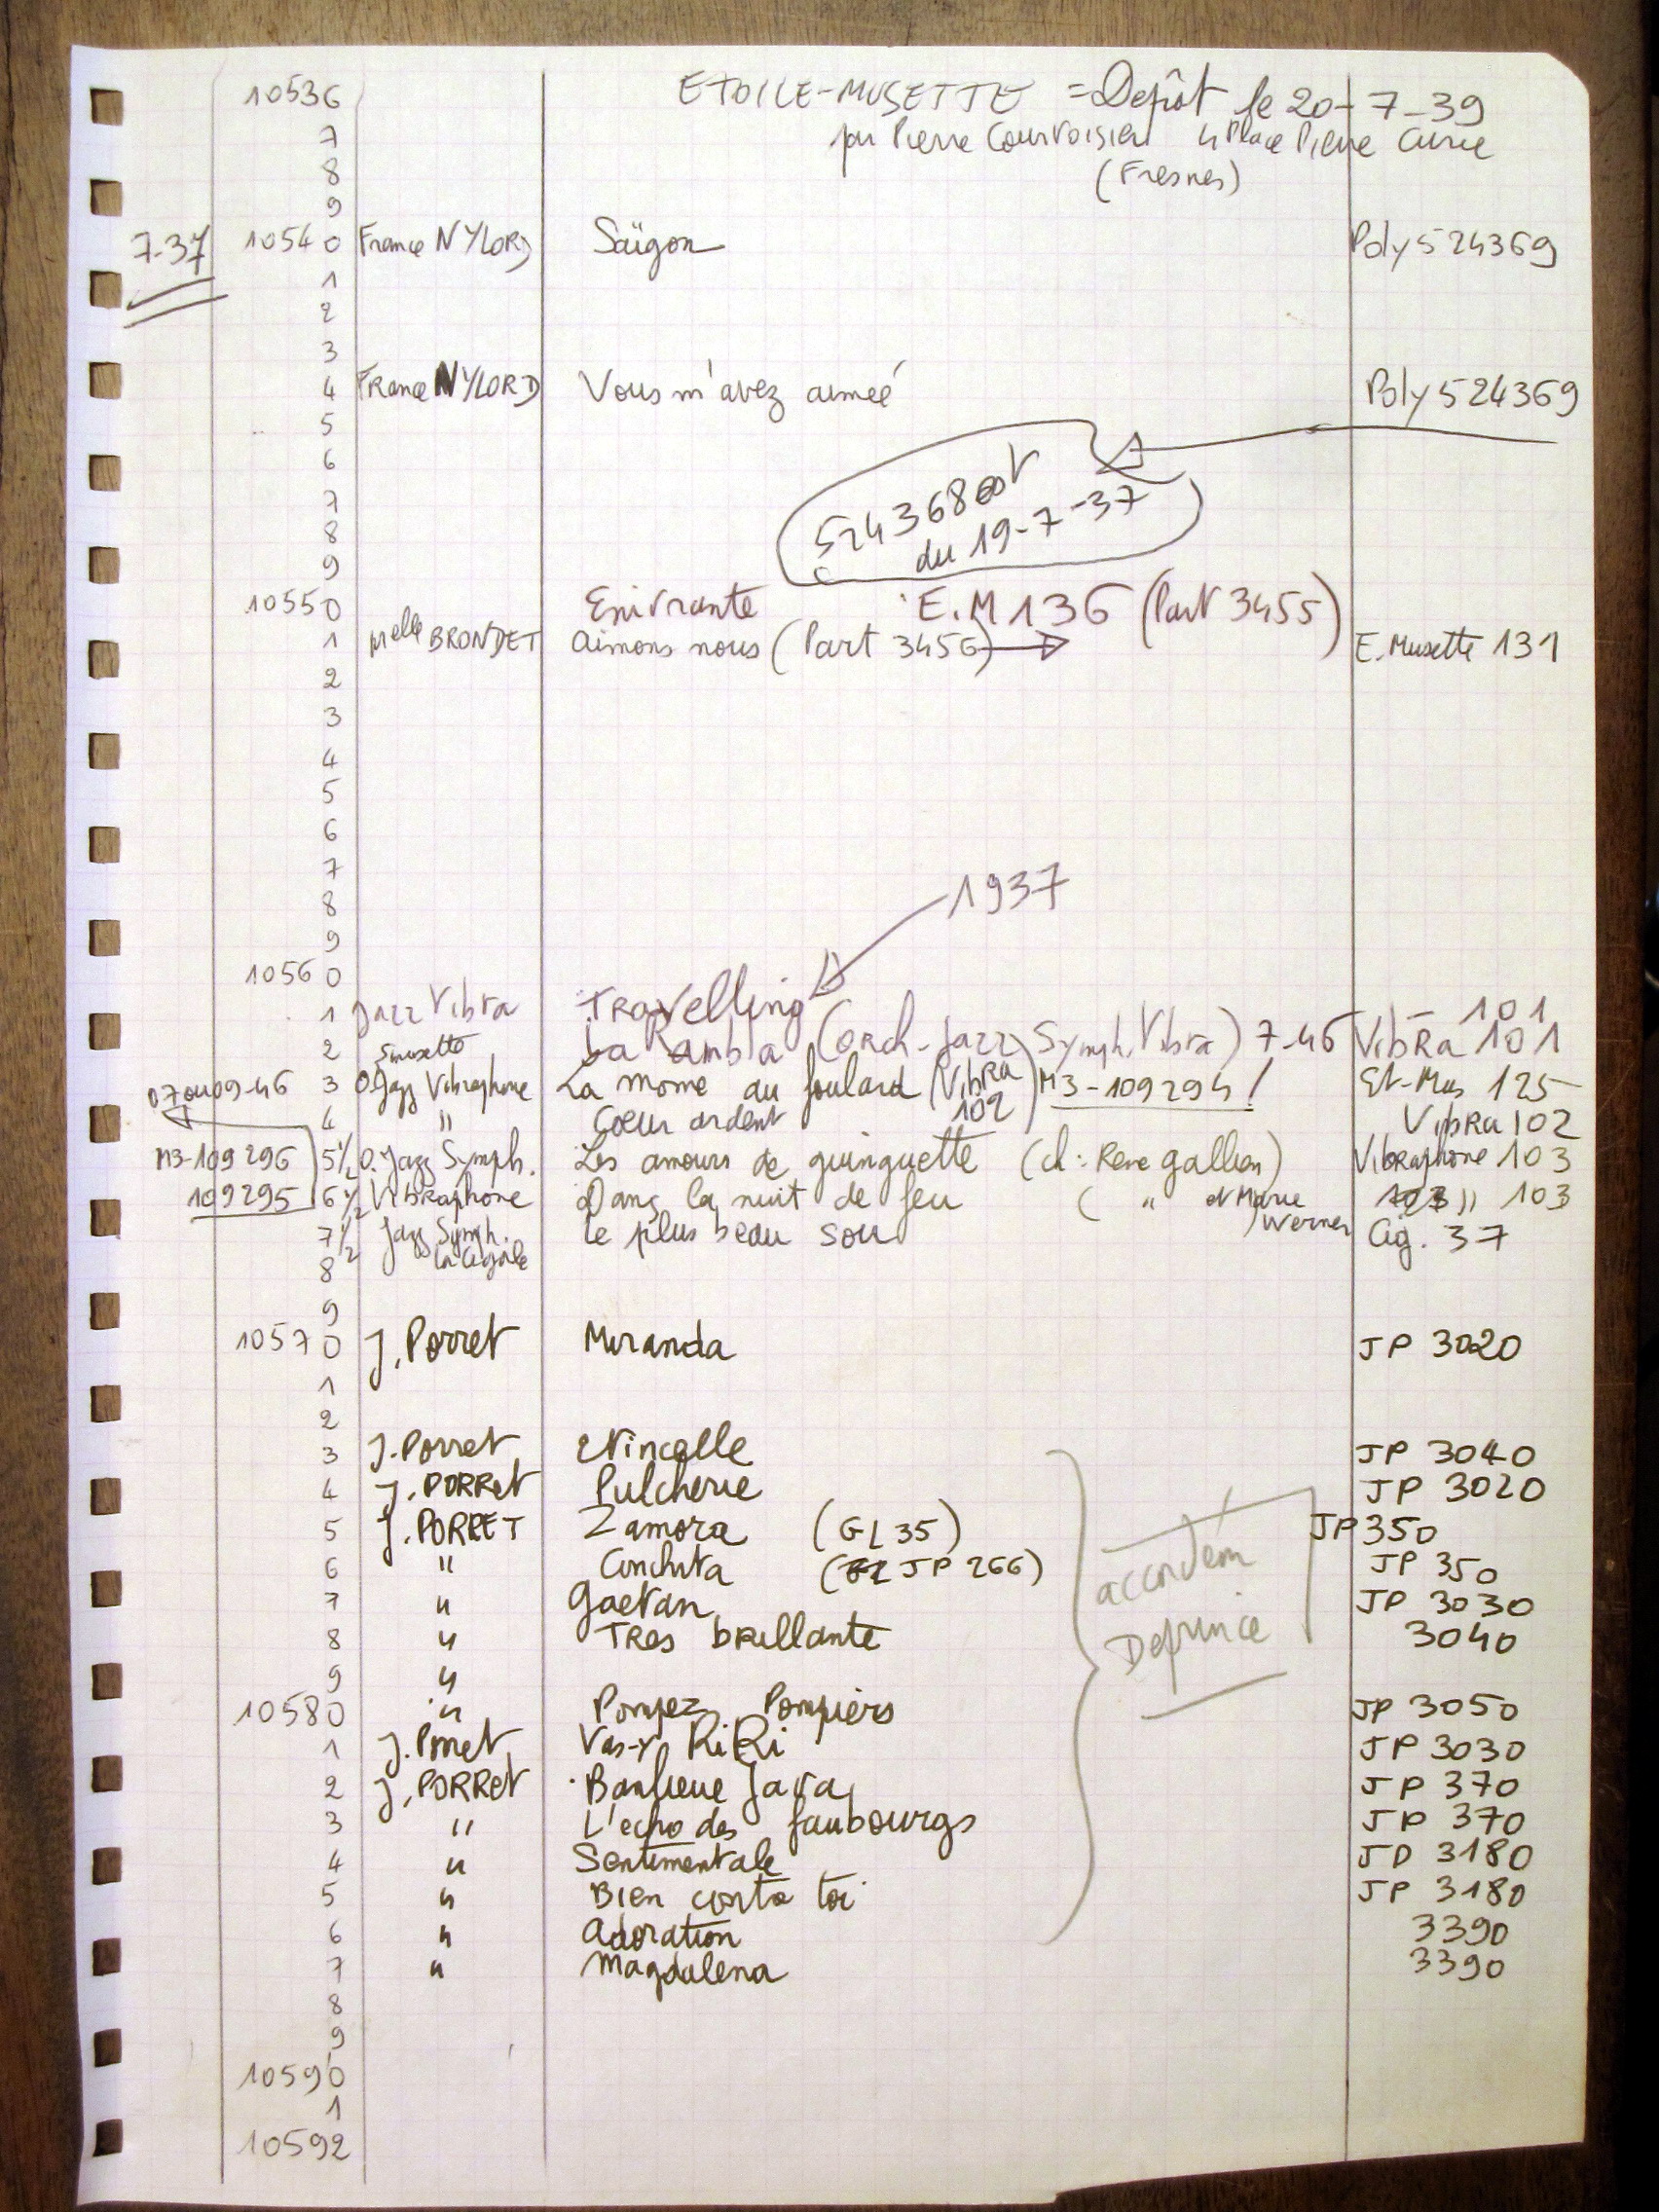 10536 ETOILE-MUSETTE = Depôt le 20-7-39
7 par Pierre Courvoisier 4 Place Pierre Curie
8 (Fresnes)
9
7-37 10540 France NYLORD Saïgon Poly 524369
1
2
3
4 France NYLORD Vous m'avez aimeé Poly 524369
5
6
7 524368 est
8 du 19-7-37
9
10550 Enivrante E.M 136 (Part 3455)
1 Melle BRONDET Aimons nous (Part 3456) E. Musette 131
2
3
4
5
6
7
8 1937
9
10560
1 Jazz Vibra Travelling 101
2 La Ramba (orch-Jazz Symph. Vibra) 7-46 Vibra 101
07 ou 09-46 3 O. Jazz Vibraphone La mome au foulard (Vibra 102) M3-109294! Et-Mus 125
4 " Coeur ardent Vibra 102
M3-109296 5 1/2 O. Jazz Symph. Les amours de guinguette (ch: René Gallien) Vibraphone 103
109295 6 1/2 Vibraphone Dans la nuit de feu ( " et Marie Werner) " 103
7 1/2 Jazz Symph. Le plus beau sou Cig. 37
8 La Cigale
9
10570 J. Porret Miranda JP 3020
1
2
3 J. Porret Etincelle JP 3040
4 J. PORRET Pulcherie JP 3020
5 J. PORRET Zamora (GL 35) JP 350
6 " Conchita (JP 266) accordéon JP 350
7 " Gaetan JP 3030
8 " Tres brillante Deprince 3040
9 "
10580 " Pompez Pompiers JP 3050
1 J. Porret Vas-y RiRi JP 3030
2 J. PORRET Banlieue Java JP 370
3 " L'echo des faubourgs JP 370
4 " Sentimentale JP 3180
5 " Bien contre toi JP 3180
6 " Adoration 3390
7 " Magdalena 3390
8
9
10590
1
10592